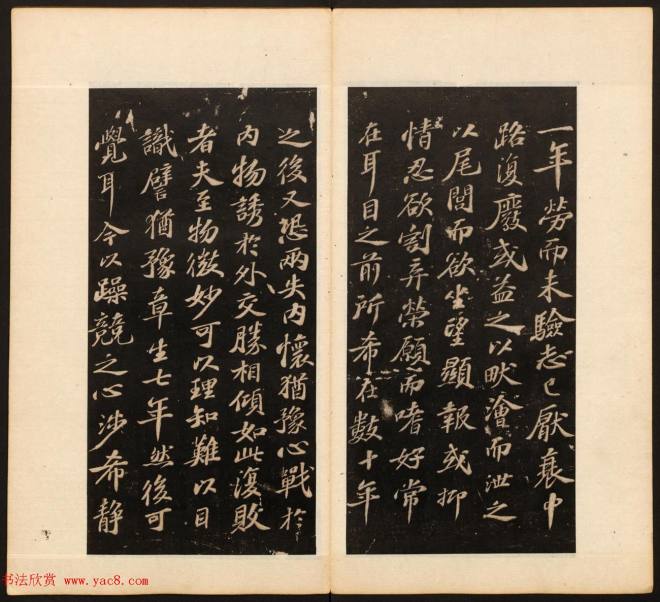 一年勞而未驗志已厭衰中
路復廢或益之以畎澮而泄之
以尾閭而欲坐望顯報或抑
情忍欲割弃榮願而嗜好常
在耳目之前所希在數十年
之後又恐兩失内懷猶豫心戰於
内物誘於外交賒相傾如此復敗
者夫至物微妙可以理知難以目
識譬猶豫章生七年然後可
覺耳今以躁競之心涉希静
书法欣赏 www.yac8.com